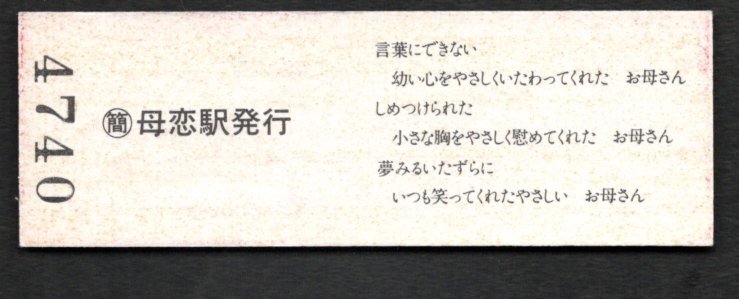 4740
㊢母恋駅発行
言葉にできない
幼い心をやさしくいたわってくれた　お母さん
しめつけられた
小さな胸をやさしく慰めてくれた　お母さん
夢みるいたずらに
いつも笑ってくれたやさしい　お母さん